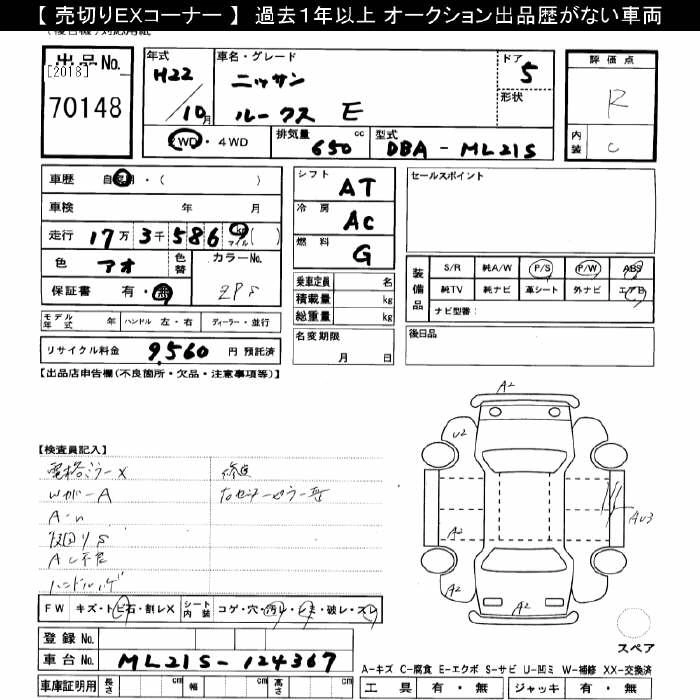 【 売切りEXコーナー 】 過去１年以上 オークション出品歴がない車両
出品No.
[2018]
70148
年式
H22
10月
車名・グレード
ニッサン
ルークス E
ドア
5
形状
評価点
R
内装
C
2WD・4WD
排気量
650 cc
型式
DBA - ML21S
車歴 自家用・( )
車検 年 月
走行 17万 3千 586 km マイル ( )
色 アオ
色替
カラーNo.
ZPS
保証書 有・無
モデル年式 年
ハンドル 左・右
ディーラー・並行
リサイクル料金 9,560 円 預託済
シフト AT
冷房 AC
燃料 G
乗車定員 名
積載量 kg
総重量 kg
名変期限
月 日
セールスポイント
装備品
S/R 純A/W P/S P/W ABS
純TV 純ナビ 革シート 外ナビ エアB
ナビ型番：
後日品
【出品店申告欄(不良箇所・欠品・注意事項等)】
【検査員記入】
電格ミラーX
A-n
AC不良
FW キズ・トビ石・割レX
シート内装 コゲ・穴・汚レ・シミ・破レ・スレ
A2
U2
A2
A2
A2
AU3
スペア
登録No.
車台No. ML21S-124367
車庫証明用 長さ cm 幅 cm 高さ cm
A－キズ C－腐食 E－エクボ S－サビ U－凹ミ W－補修 XX－交換済
工具 有・無
ジャッキ 有・無